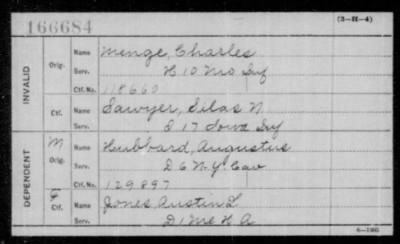 166684
(3-H-4)
INVALID
Orig.
Name Menge, Charles
Serv. H 10 Mo Inf
Ctf. No. 118660
Ctf.
Name Sawyer, Silas N
Serv. I 17 Iowa Inf
DEPENDENT
M
Orig.
Name Hubbard, Augustus
Serv. D 6 N.Y. Cav
Ctf. No. 129.897
Ctf.
Name Jones Austin L
Serv. D 1 Me H A
6-1905